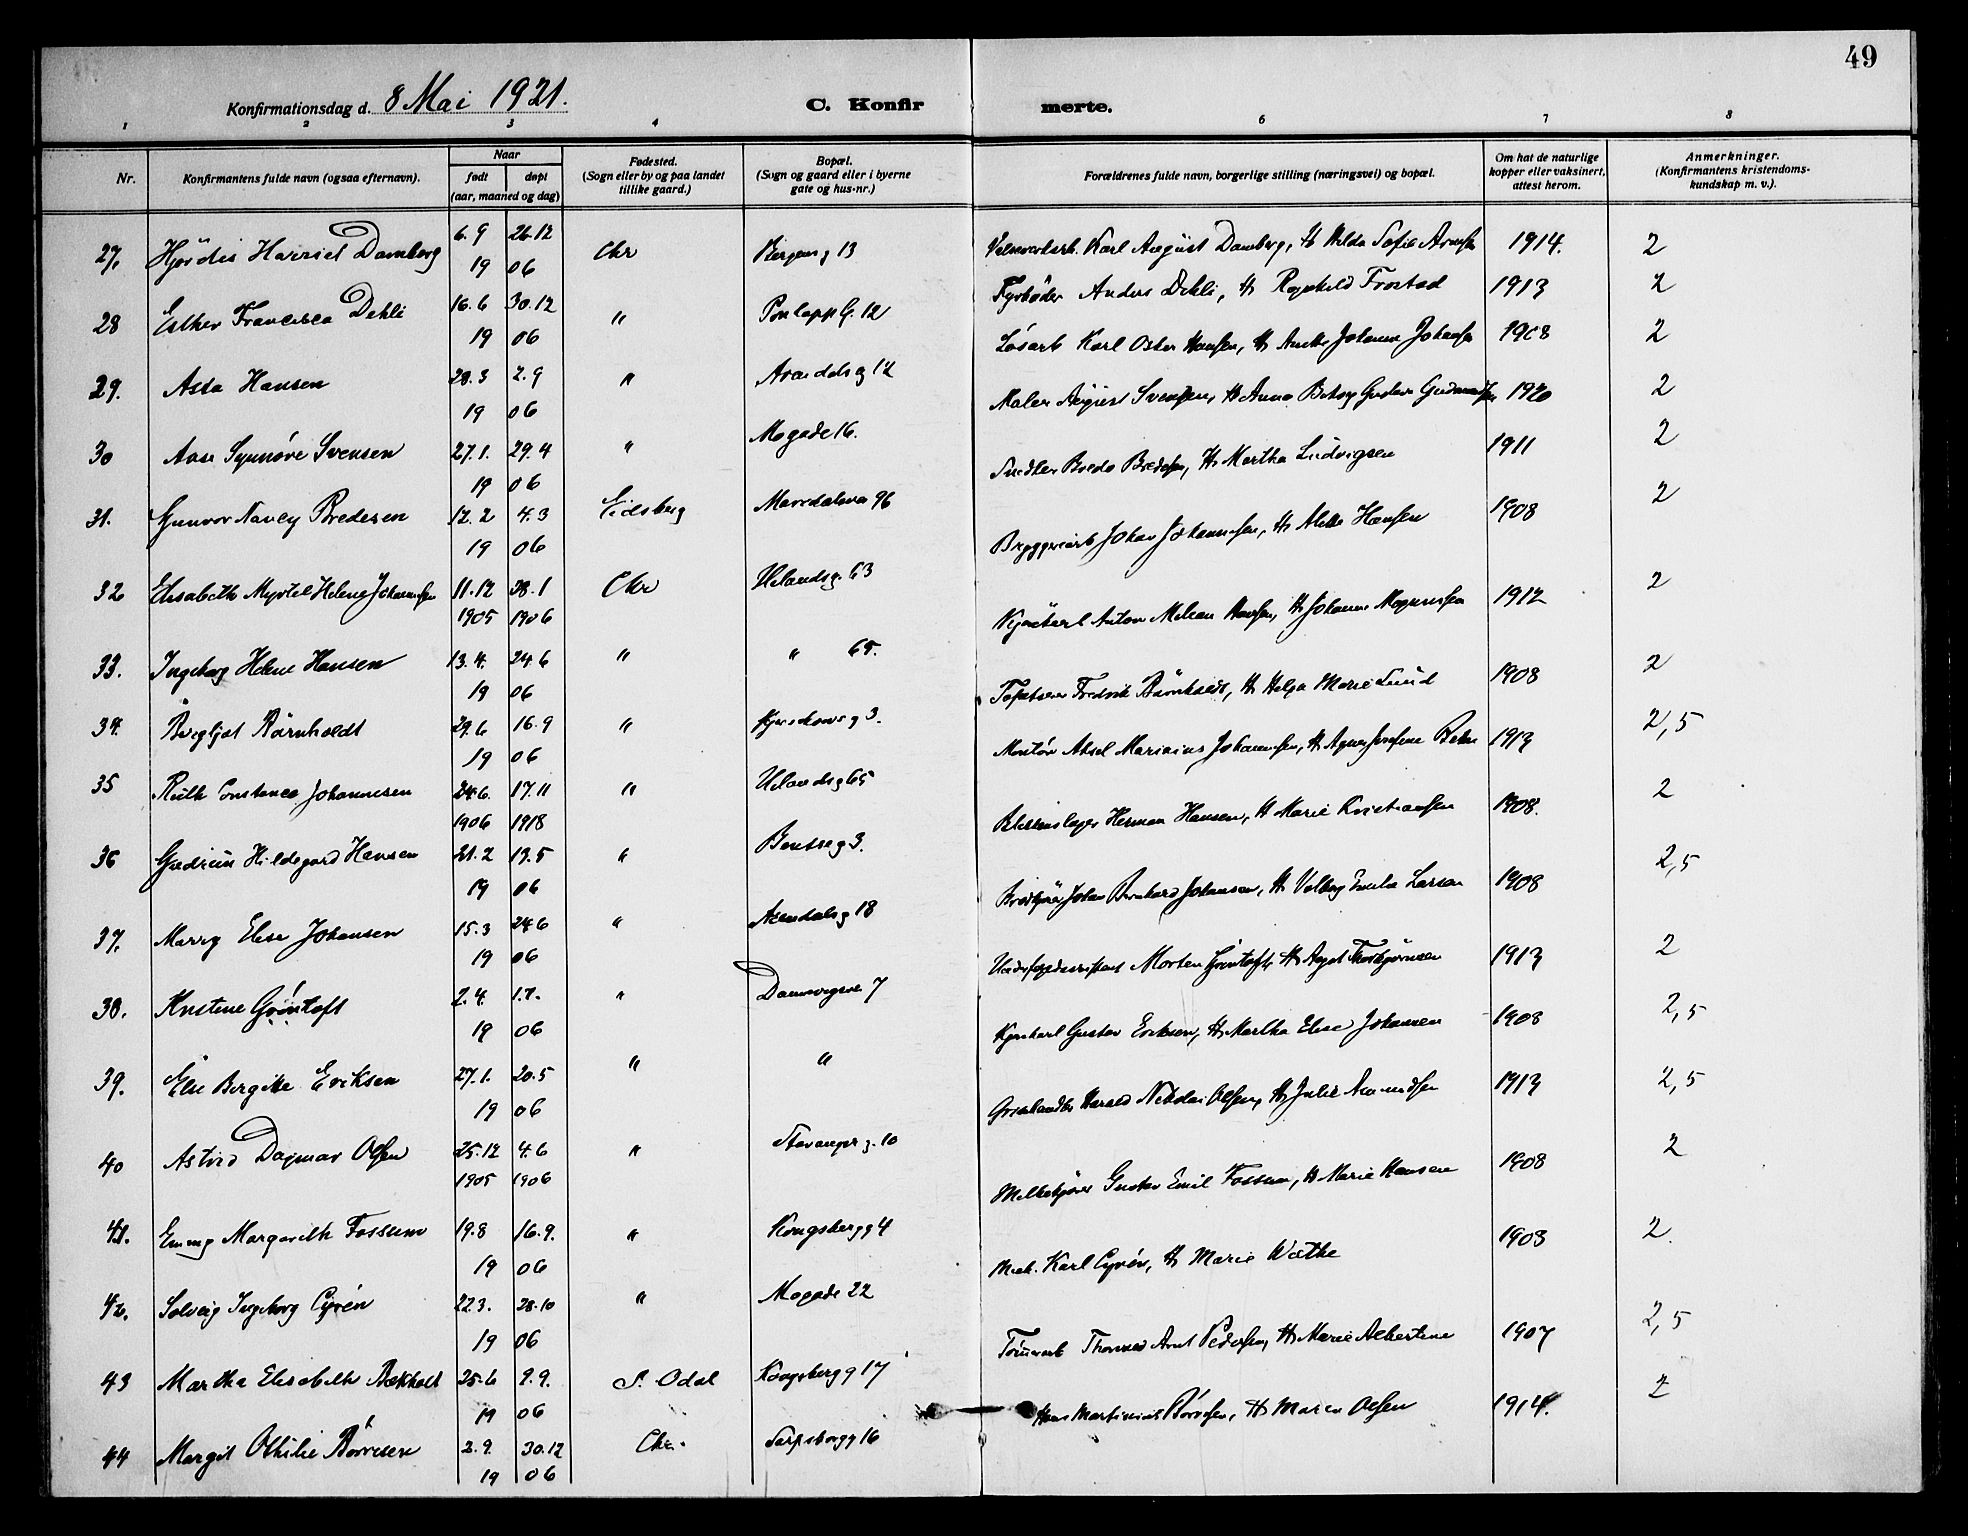 49
Konfirmationsdag d. 8 Mai 1921. C. Konfir merte.
1 2 3 4 6 7 8
Nr. Konfirmantens fulde navn (ogsaa efternavn). Naar født døpt (aar, maaned og dag) Fødested. (Sogn eller by og paa landet tillike gaard.) Bopæl. (Sogn og gaard eller i byerne gate og hus-nr.) Forældrenes fulde navn, borgerlige stilling (næringsvei) og bopæl. Om hat de naturlige kopper eller vaksinert, attest herom. Anmerkninger. (Konfirmantens kristendomskundskap m. v.).
27. Hjördis Harriet Damberg 6.9 26.12 19 06 Chr Bergensg 13 Karl August Damberg, H Hilda Sofie 1914. 2
28 Esther Francisca Dehli 16.6 30.12 19 06 " 12 Fyrbøder Anders Dehli, H Ragnhild Frostad 1913 2
29. Asta Hansen 28.3 2.9 19 06 " Arendalsg 12 Løsarb Karl Oskar Hansen, H Johanne Johansen 1908 2
30 Aase Synnöve Svensen 27.1. 29.4 19 06 " Mogade 16. Maler August Svensen, H Anna Betsy 1920 2
31. Gunvor Nancy Bredesen 12.2 4.3 19 06 Eidsberg Maridalsvn 96 Snedker Bredo Bredesen, H Martha Ludvigsen 1911 2
32 Elisabeth Myrtel Helene Johannesen 11.12 28.1 1905 1906 Chr Uelandsg. 63 Bryggeriarb Johan Johannesen, H Hansen 1908 2
33. Ingeborg Helene Hansen 13.4. 24.6 19 06 " " 65. Anton Hansen, H Johanne Magnussen 1912 2
34. Bergljot Bärnholdt 29.6 16.9 19 06 " Kjerschowsg 3. Fredrik Bärnholdt, H Helga Marie Lund 1908 2
35 Ruth Constance Johannesen 24.6. 17.11 1906 1918 " Uelandsg 65 Montör Aksel Marinius Johannesen, H Agnes Josefine 1913 2,5
36 Gudrun Hildegard Hansen 21.2 19.5 19 06 " Bentseg 3. Blikkenslager Herman Hansen, H Marie Kristiansen 1908. 2
37. Marry Elise Johansen 15.3 24.6 19 06 " Arendalsg 18 Johan Bernhard Johansen, H Valborg Emilie Larsen 1908 2,5
38. Kristine Gröntoft 2.4. 1.7. 19 06 " 7 Morten Gröntoft, H Thorbjørnsen 1913 2
39. Else Birgitte Eriksen 27.1. 20.5 19 06 " " Gustav Eriksen, H Martha Elise Johansen 1908 2,5
40 Astrid Dagmar Olsen 25.12 4.6 1905 1906 " Stavangerg. 10 Harald Nikolai Olsen, H Julie Amundsen 1913 2,5
41. Emmy Margareth Fossum 19.8 16.9. 19 06 " Kongsbergg 4 Melkekjører Gustav Emil Fossum, H Marie Hansen 1908 2
42. Solveig Ingeborg Cyrén 22.3. 28.10 19 06 " Mogade 22 Mek. Karl Cyrén, H Marie Wæthe 1908 2.
43 Martha Elisabeth Bækholt 25.6 9.9. 19 06 S. Odal Kongsbergg 17 Thorvald Arnt Pedersen, H Marie Albertine 1907 2,5
44 Margit Othilie Börresen 2.9. 30.12 19 06 Chr. Sarpsborgg 16 Hans Martinius Börresen, H Maren Olsen 1914. 2